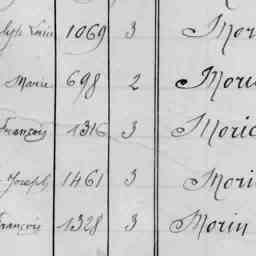 Louis 1069 3 Mori
Marie 698 2 Mori
François 1316 3 Mori
Joseph 1461 3 Mori
François 1328 3 Morin